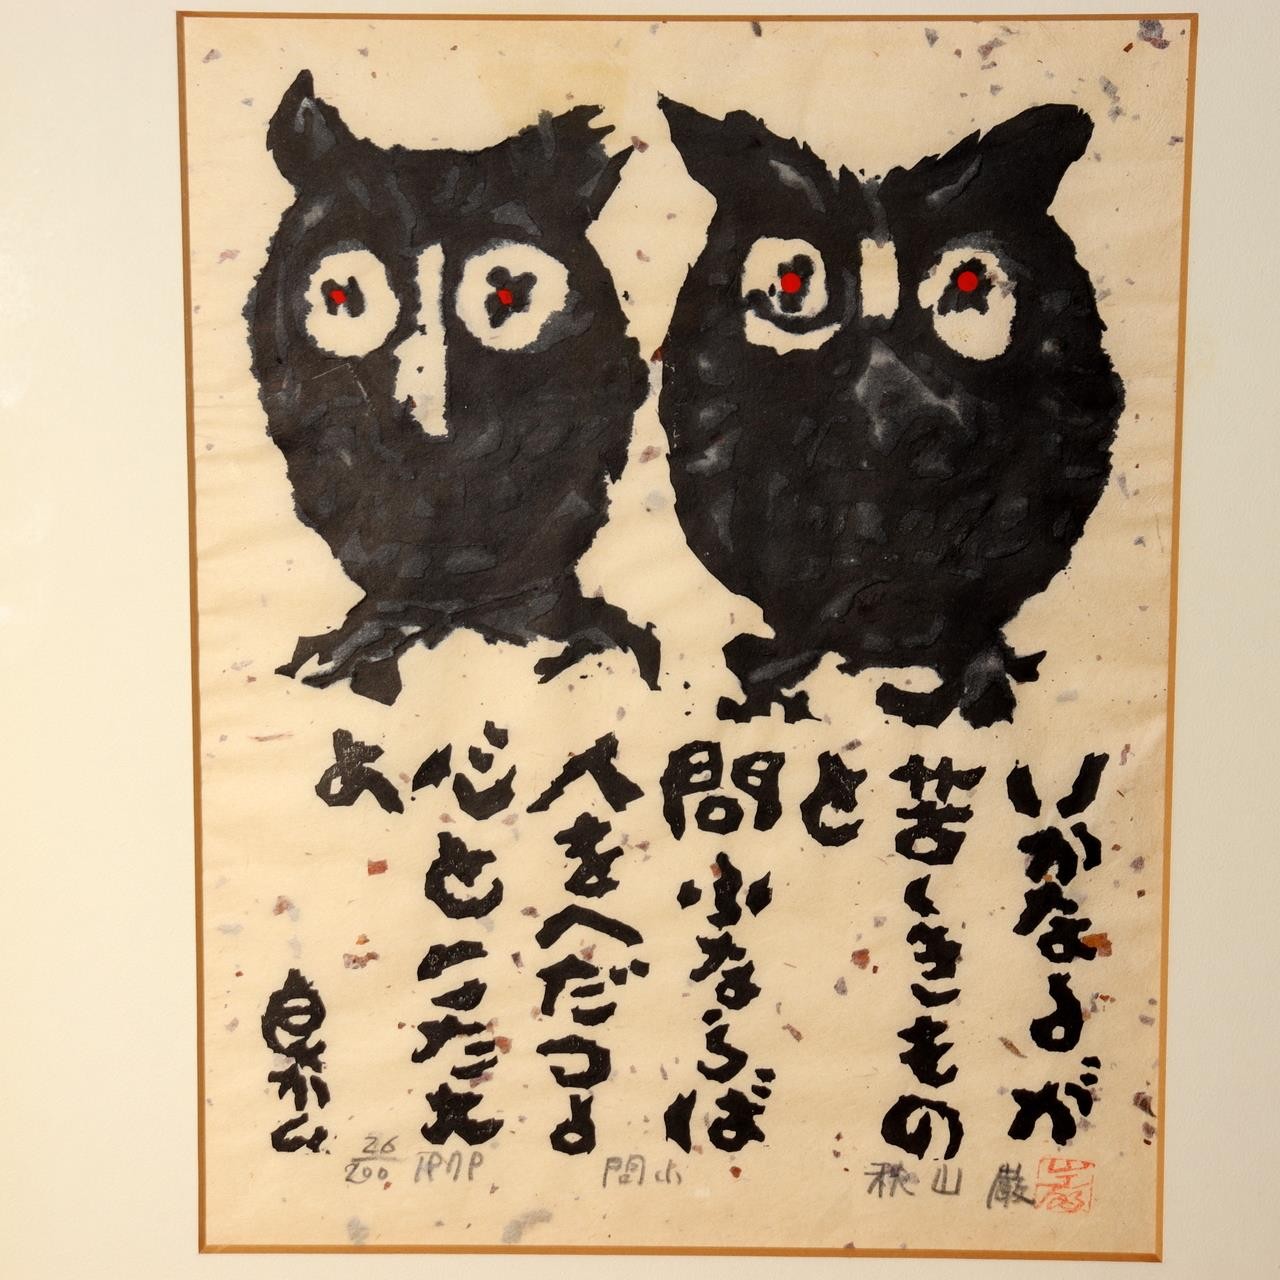 いかなるが
苦しきもの
と
問ふならば
人をへだつる
心とこたえ
よ
良かん
26/200
問ふ
秋山 巌